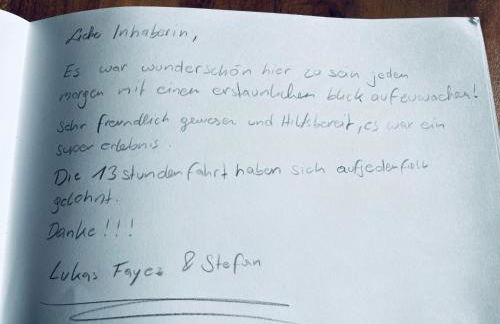 Liebe Inhaberin,
Es war wunderschön hier zu sein jeden
morgen mit einen erstaunlichen blick aufzuwachen!
Sehr freundlich gewesen und Hilfsbereit, es war ein
super erlebnis.
Die 13 stunden fahrt haben sich aufjedenfall
gelohnt.
Danke!!!
Lukas Fayez & Stefan